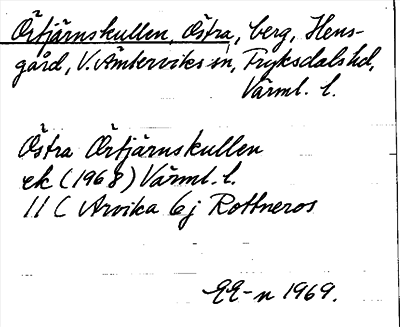 Örtjärnskullen, Östra, berg, Hens-
gård, V. Ämterviks sn, Fryksdals hd,
Värml. l.
Östra Örtjärnskullen
ek (1968) Värml. l.
11 C Arvika 6j Rottneros
1969.